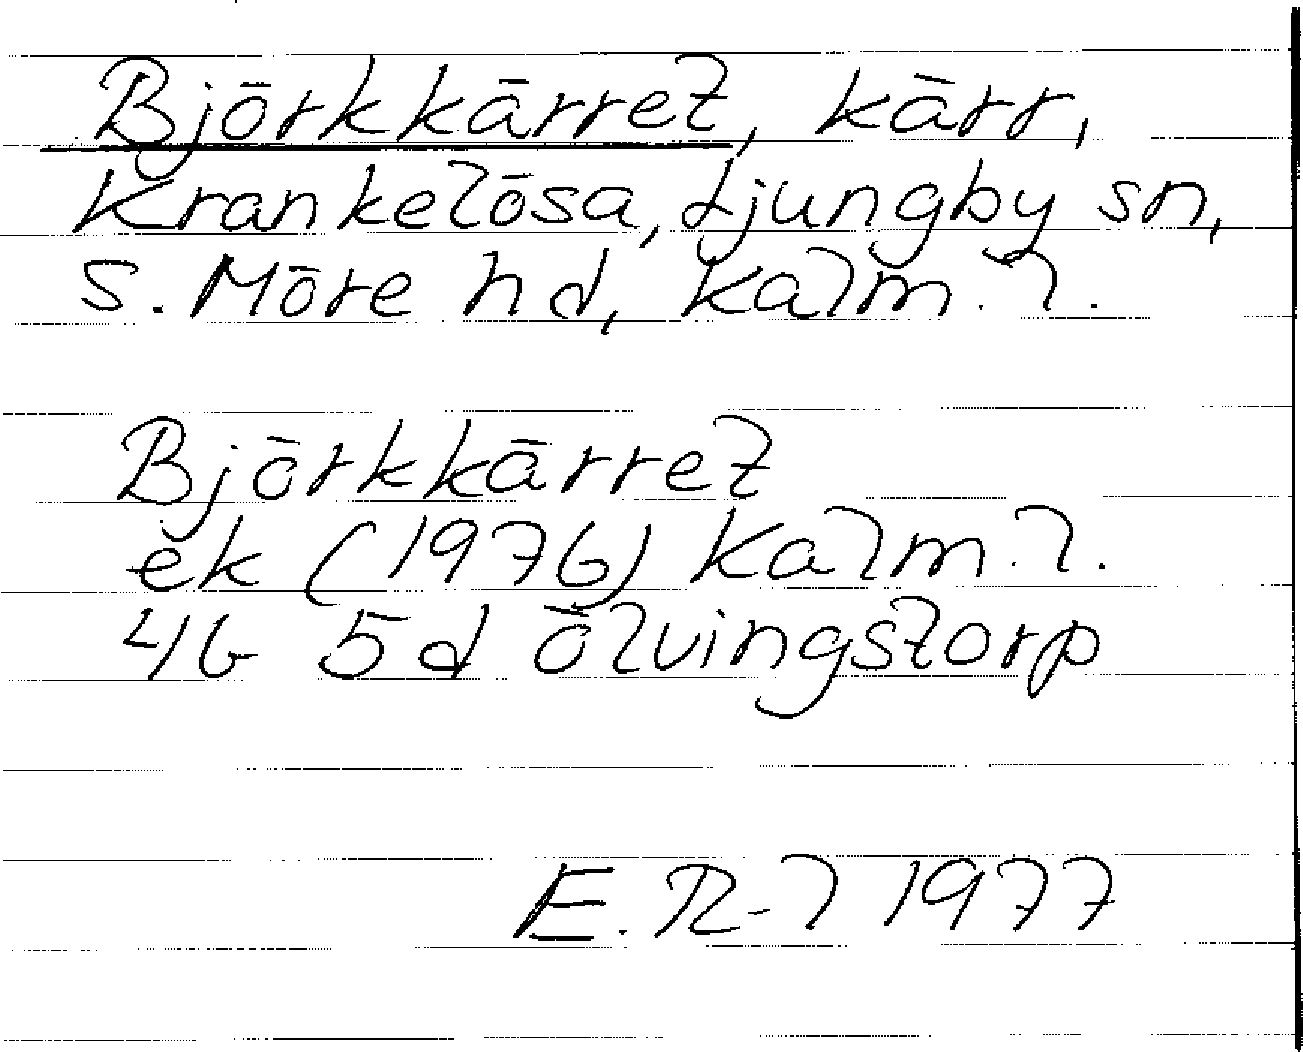 Björkkärret, kärr,
Krankelösa, Ljungby sn,
S. Möre hd, Kalm. l.
Björkkärret
ek (1976) Kalm. l.
4G 5d Ölvingstorp
E. R-l 1977